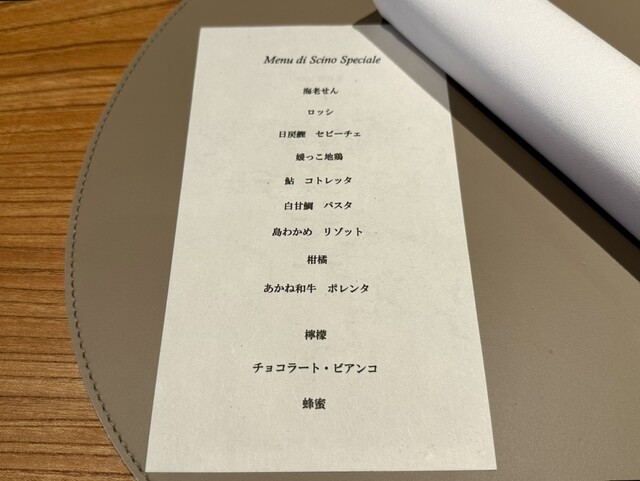 Menu di Scino Speciale
海老せん
ロッシ
日戻鰹　セビーチェ
媛っこ地鶏
鮎　コトレッタ
白甘鯛　パスタ
島わかめ　リゾット
柑橘
あかね和牛　ポレンタ
檸檬
チョコラート・ビアンコ
蜂蜜